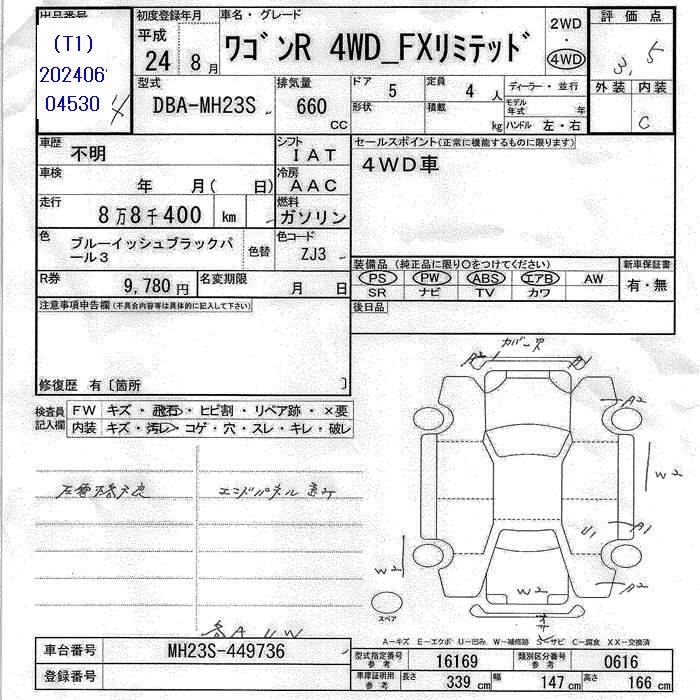 出品番号 初度登録年月 車名・グレード 2WD ・ 4WD 評価点
(T1) 202406 04530 4
平成 24 8月 ワゴンR 4WD_FXリミテッド 3,5
型式 排気量 ドア 5 定員 4人 ディーラー・並行 外装 内装
DBA-MH23S 660 CC 形状 積載 kg モデル年式 年 ハンドル 左・右 C
車歴 不明 シフト IAT セールスポイント(正常に機能するものに限ります)
車検 年 月( 日) 冷房 AAC 4WD車
走行 8万8千400 km 燃料 ガソリン
色 ブルーイッシュブラックパール3 色替 色コード ZJ3
装備品(純正品に限り○をつけてください) 新車保証書
R券 9,780円 名変期限 月 日 PS PW ABS エアB AW 有・無
SR ナビ TV カワ
注意事項申告欄(不具合内容等は具体的に記入して下さい) 後日品
修復歴 有〔箇所 〕
検査員記入欄 FW キズ・飛石・ヒビ割・リペア跡・×要
内装 キズ・汚レ・コゲ・穴・スレ・キレ・破レ
カバー欠
A2
W2
エンジパネル 歪み
U1 A1
W2 A2
W2
スペア
A W
A-キズ E-エクボ U-凹み W-補修跡 S-サビ C-腐食 XX-交換済
車台番号 MH23S-449736 型式指定番号 参考 16169 類別区分番号 参考 0616
登録番号 車庫証明用 参考 長さ 339 cm 幅 147 cm 高さ 166 cm